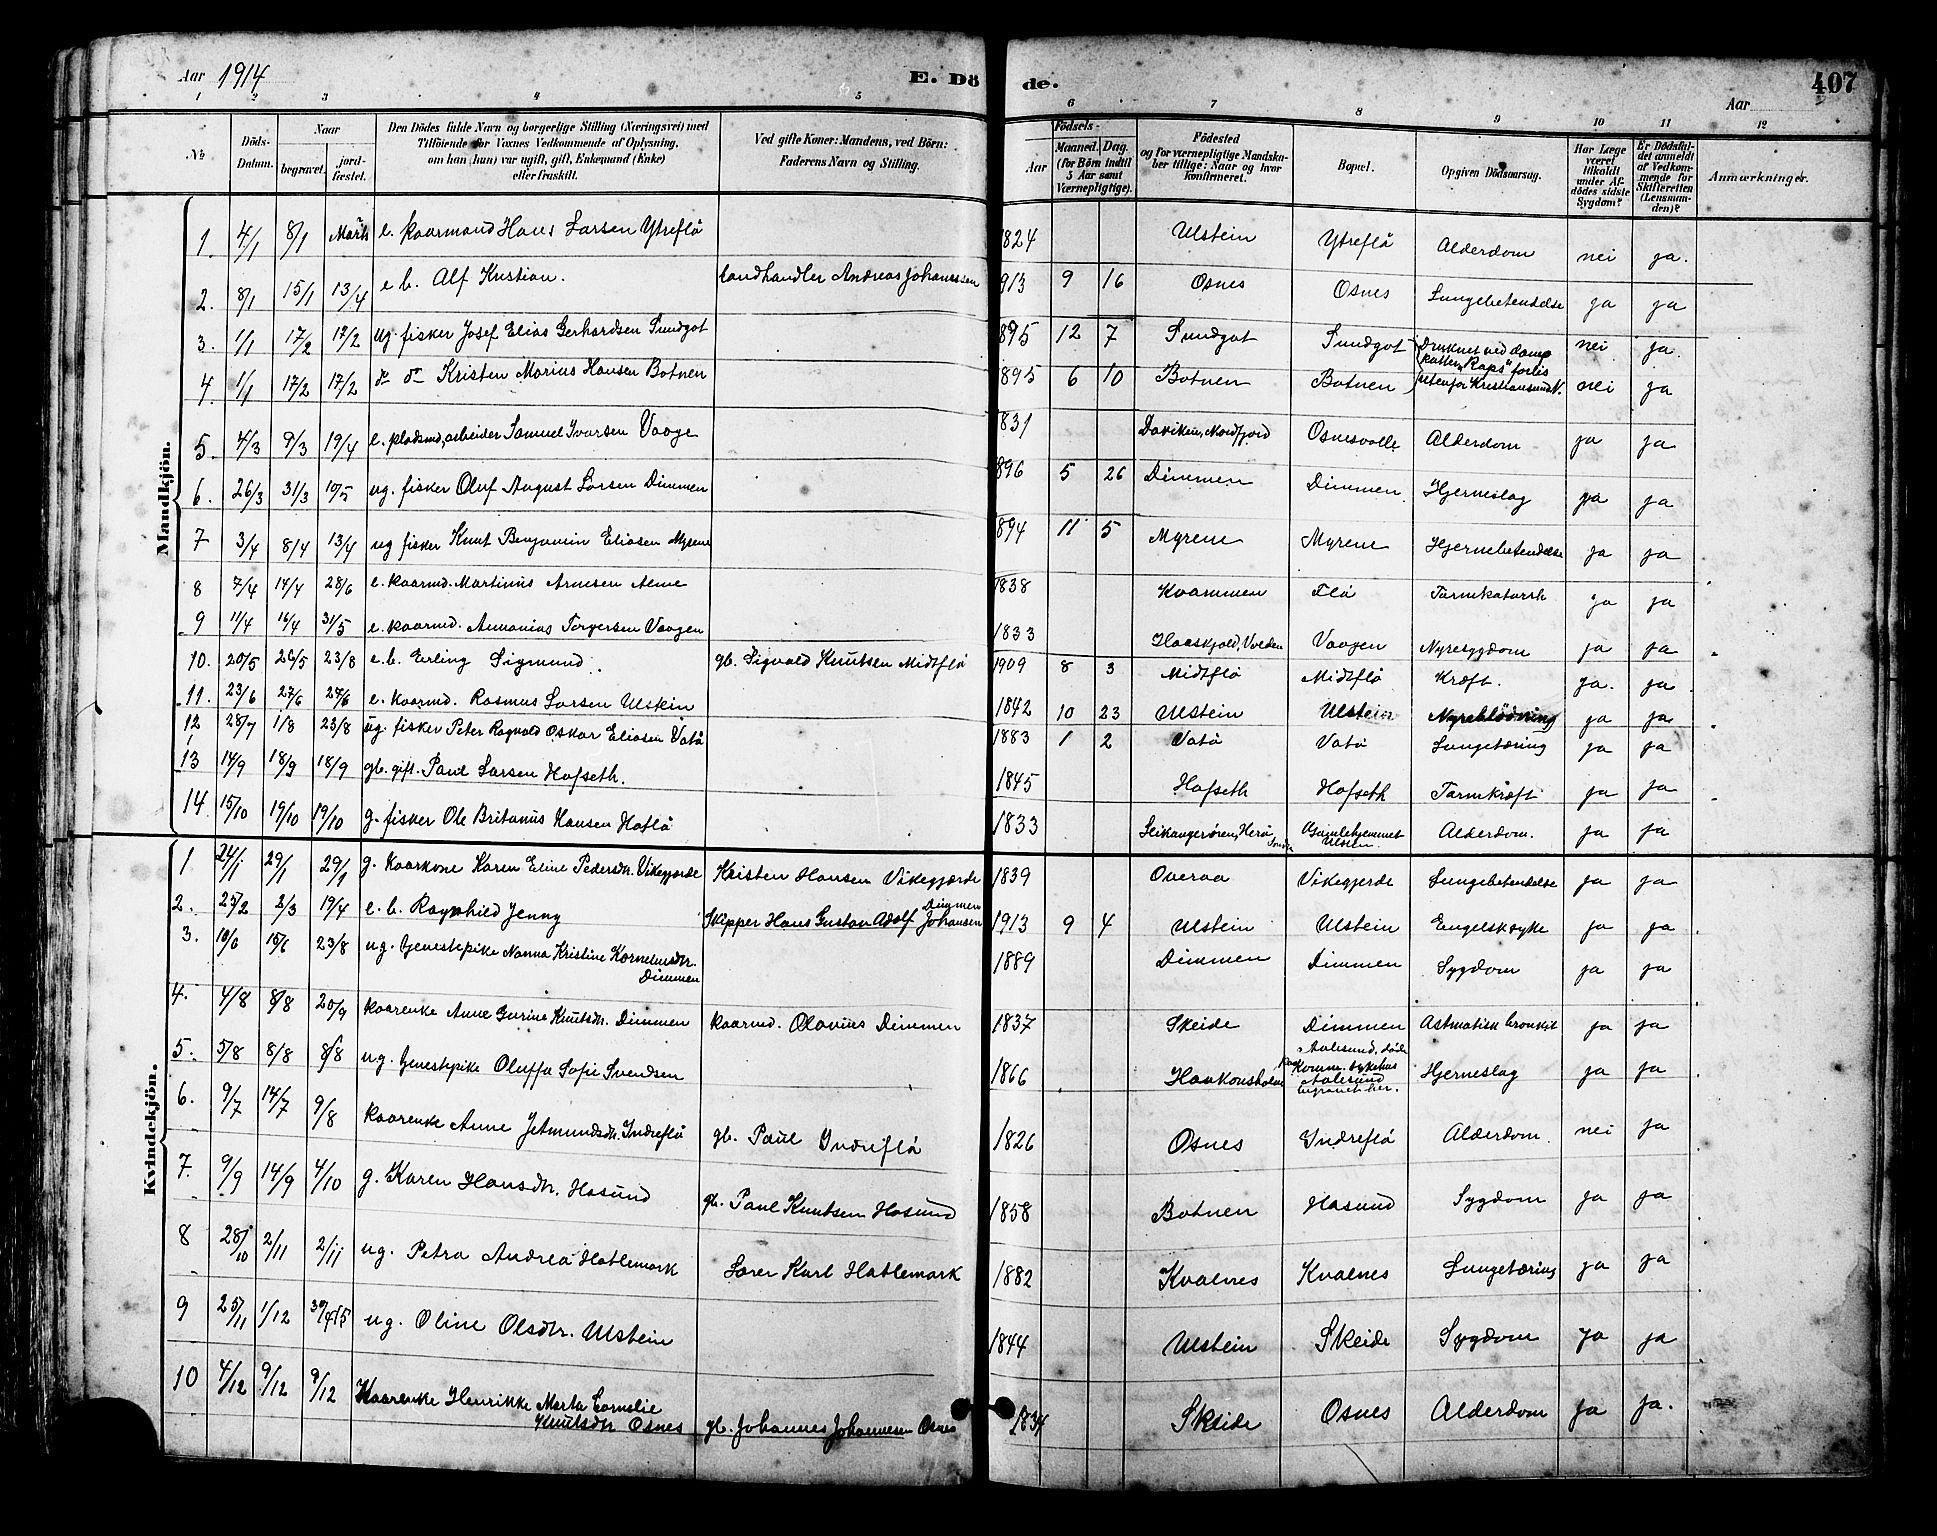 Aar 1914
E. Dö de.
407
Aar
1 2 3 4 5 6 7 8 9 10 11 12
No
Döds-Datum.
Naar
begravet.
jord-fæstet.
Den Dödes fulde Navn og borgerlige Stilling (Næringsvei) med Tilföiende for Voxnes Vedkommende af Oplysning, om han (hun) var ugift, gift, Enkemand (Enke) eller fraskilt.
Ved gifte Koner: Mandens, ved Börn: Faderens Navn og Stilling.
Födsels-
Aar
Maaned. Dag.
(for Börn indtil 5 Aar samt Værnepligtige).
Födested og for værnepligtige Mandska-ber tillige: Naar og hvor konfirmeret.
Bopæl.
Opgiven Dödsaarsag.
Har Læge været tilkaldt under Af-dödes sidste Sygdom?
Er Dødsfal-det anmeldt af Vedkom-mende for Skifteretten (Lensman-den)?
Anmærkninger.
Mandkjön.
1. 4/1 8/1 Marts e. kaarmand Hans Larsen Ytreflö 1824 Ulstein Ytreflö Alderdom nei ja.
2. 8/1 15/1 13/4 e b. Alf Kristian. landhandler Andreas Johanessen 913 9 16 Osnes Osnes Lungebetendelse ja ja
3. 1/1 17/2 17/2 ug. fisker Josef Elias Gerhardsen Sundgot 895 12 7 Sundgot Sundgot Druknet ved damp kutter "Raps" forlis utenfor Kristiansund N. nei ja.
4. 1/1 17/2 17/2 do do Kristen Marius Hansen Botnen 895 6 10 Botnen Botnen nei ja
5. 4/3 9/3 19/4 e. pladsmd, arbeider Samuel Ivarsen Vaage 831 Daviken, Nordfjord Osnesvolle Alderdom ja ja
6. 26/3 31/3 10/5 ug. fisker Oluf August Larsen Dimmen 896 5 26 Dimmen Dimmen Hjerneslag ja ja
7 3/4 8/4 13/4 ug fisker Knut Benjamin Eliasen Myrene 894 11 5 Myrene Myrene Hjernebetendelse ja ja
8 7/4 14/4 28/6 e. kaarmd. Martinus Arnesen Alme 1838 Kvammen Flö Tarmkatarrh ja ja
9 11/4 16/4 31/5 e. kaarmd. Annanias Torgersen Vaagen 1833 Haaskjold, Volden Vaagen Nyresygdom ja ja
10. 20/5 26/5 23/8 e.b. Erling Sigmund. gb. Sigvald Knutsen Midtflö 1909 8 3 Midtflö Midtflö Kræft. ja. ja
11. 23/6 27/6 27/6 e. kaarmd. Rasmus Larsen Ulstein 1842 10 23 Ulstein Ulstein Nyreblödning ja ja
12 28/7 1/8 23/8 ug. fisker Peter Ragvald Oskar Eliasen Vatö 1883 1 2 Vatö Vatö Lungetæring ja ja
13 14/9 18/9 18/9 gb. gift. Paul Larsen Hofseth. 1845 Hofseth Hofseth Tarmkræft ja ja
14. 15/10 19/10 19/10 g. fisker Ole Britanus Hansen Haflö 1833 Leikangerören, Herö Gamlehjemmet Ulstein. Alderdom. ja ja
Kvindekjön.
1 24/1 29/1 29/1 g. kaarkone Karen Eline Pedersdtr. Vikegjerde Kristen Hansen Vikegjærde 1839 Overaa Vikegjerde Lungebetendelse ja ja
2. 25/2 2/3 19/4 e. b. Ragnhild Jenny Skipper Hans Gustav Adolf Johansen Dimmen 1913 9 4 Ulstein Ulstein Engelsksyke ja ja
3. 10/6 15/6 23/8 ug. tjenestepike Nanna Kristine Korneliusdtr. Dimmen 1889 Dimmen Dimmen Sygdom ja ja
4. 4/8 8/8 20/9 kaarenke Anne Gurine Knutsdtr. Dimmen kaarmd. Olavius Dimmen 1837 Skeide Dimmen Astmatisk bronkit ja ja
5. 5/8 8/8 8/8 ug. Tjenestepike Oluffa Sofie Svendsen 1866 Haakonsholm Aalesund, döde paa komm. sykehus Aalesund begravet her. Hjerneslag ja ja
6. 9/7 14/7 9/8 kaarenke Anne Jetmundsdtr. Indreflö gb. Paul Indreflö 1826 Osnes Indreflö Alderdom. nei ja
7. 9/9 14/9 4/10 g. Karen Hansdtr. Hasund gb. Paul Knutsen Hasund 1858 Botnen Hasund Sygdom ja ja
8 28/10 2/11 2/11 ug. Petra Andrea Hatlemark Larer Karl Hatlemark 1882 Kvalnes Kvalnes Lungetæring ja ja
9 25/11 1/12 ug. Oline Olsdtr. Ulstein 1844 Ulstein Skeide Sygdom ja ja
10 4/12 9/12 9/12 Kaarenke Henrikke Marta Cornelie Knutsdtr Osnes gb. Johannes Johannesen Osnes 1834 Skeide Osnes Alderdom ja ja.